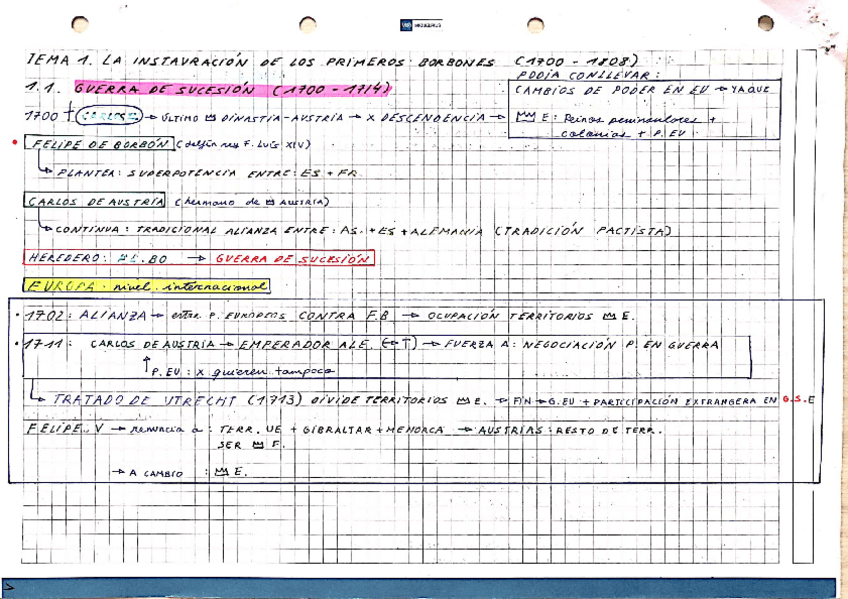 TEMA 1. LA INSTAURACIÓN DE LOS PRIMEROS BORBONES (1700 - 1808)
PODÍA CONLLEVAR:
1.1. GUERRA DE SUCESIÓN (1700 - 1714)
CAMBIOS DE PODER EN EU → YA QUE
1700 † → ÚLTIMO DINASTIA-AUSTRIA → X DESCENDENCIA →
E: Reinos peninsulares +
colonias + P. EU
FELIPE DE BORBÓN (delfín rey F. Luis XIV)
PLANTEA: SUPERPOTENCIA ENTRE: ES + FR
CARLOS DE AUSTRIA (hermano de AUSTRIA)
CONTINUA: TRADICIONAL ALIANZA ENTRE: AS. + ES + ALEMANIA (TRADICIÓN PACTISTA)
HEREDERO: BO → GUERRA DE SUCESIÓN
EUROPA nivel internacional
1702: ALIANZA → entre P. EUROPEOS CONTRA F.B → OCUPACIÓN TERRITORIOS E.
1711: CARLOS DE AUSTRIA → EMPERADOR ALE. → FUERZA A: NEGOCIACIÓN P. EN GUERRA
P. EU: X quieren tampoco
TRATADO DE UTRECHT (1713) DIVIDE TERRITORIOS E. → FIN → G. EU + PARTICIPACIÓN EXTRANGERA EN G.S.E
FELIPE V → renuncia a: TERR. UE + GIBRALTAR + MENORCA → AUSTRIAS: RESTO DE TERR.
SER F.
→ A CAMBIO : E.